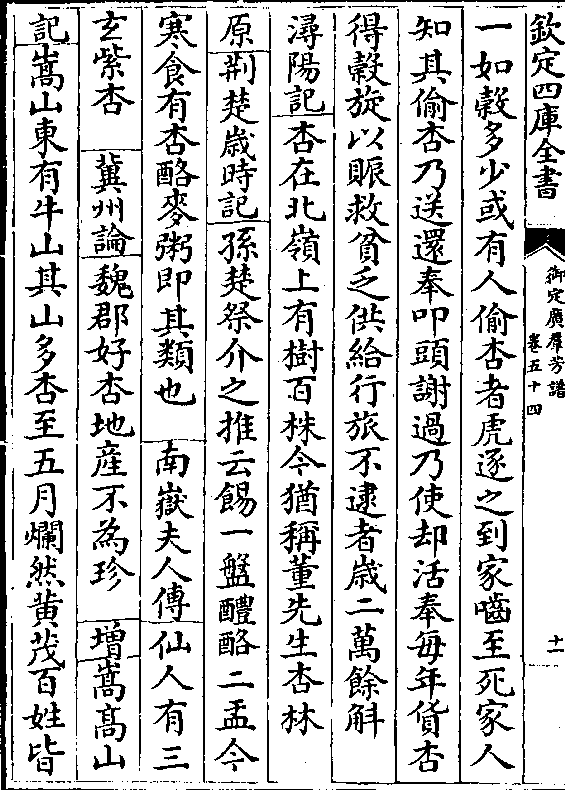 欽定四庫全書
御定廣羣芳譜
卷五十四
十一
一如榖多少或有人偷杏者虎逐之到家嚙至死家人
知其偷杏乃送還奉叩頭謝過乃使却活奉每年貨杏
得榖旋以賑救貧乏供給行旅不逮者歲二萬餘斛
潯陽記杏在北嶺上有樹百株今猶稱董先生杏林
原荆楚歲時記孫楚祭介之推云餳一盤醴酪二盂今
寒食有杏酪麥粥即其類也 南嶽夫人傳仙人有三
玄紫杏 冀州論魏郡好杏地産不為珍 增嵩髙山
記嵩山東有牛山其山多杏至五月爛然黄茂百姓皆